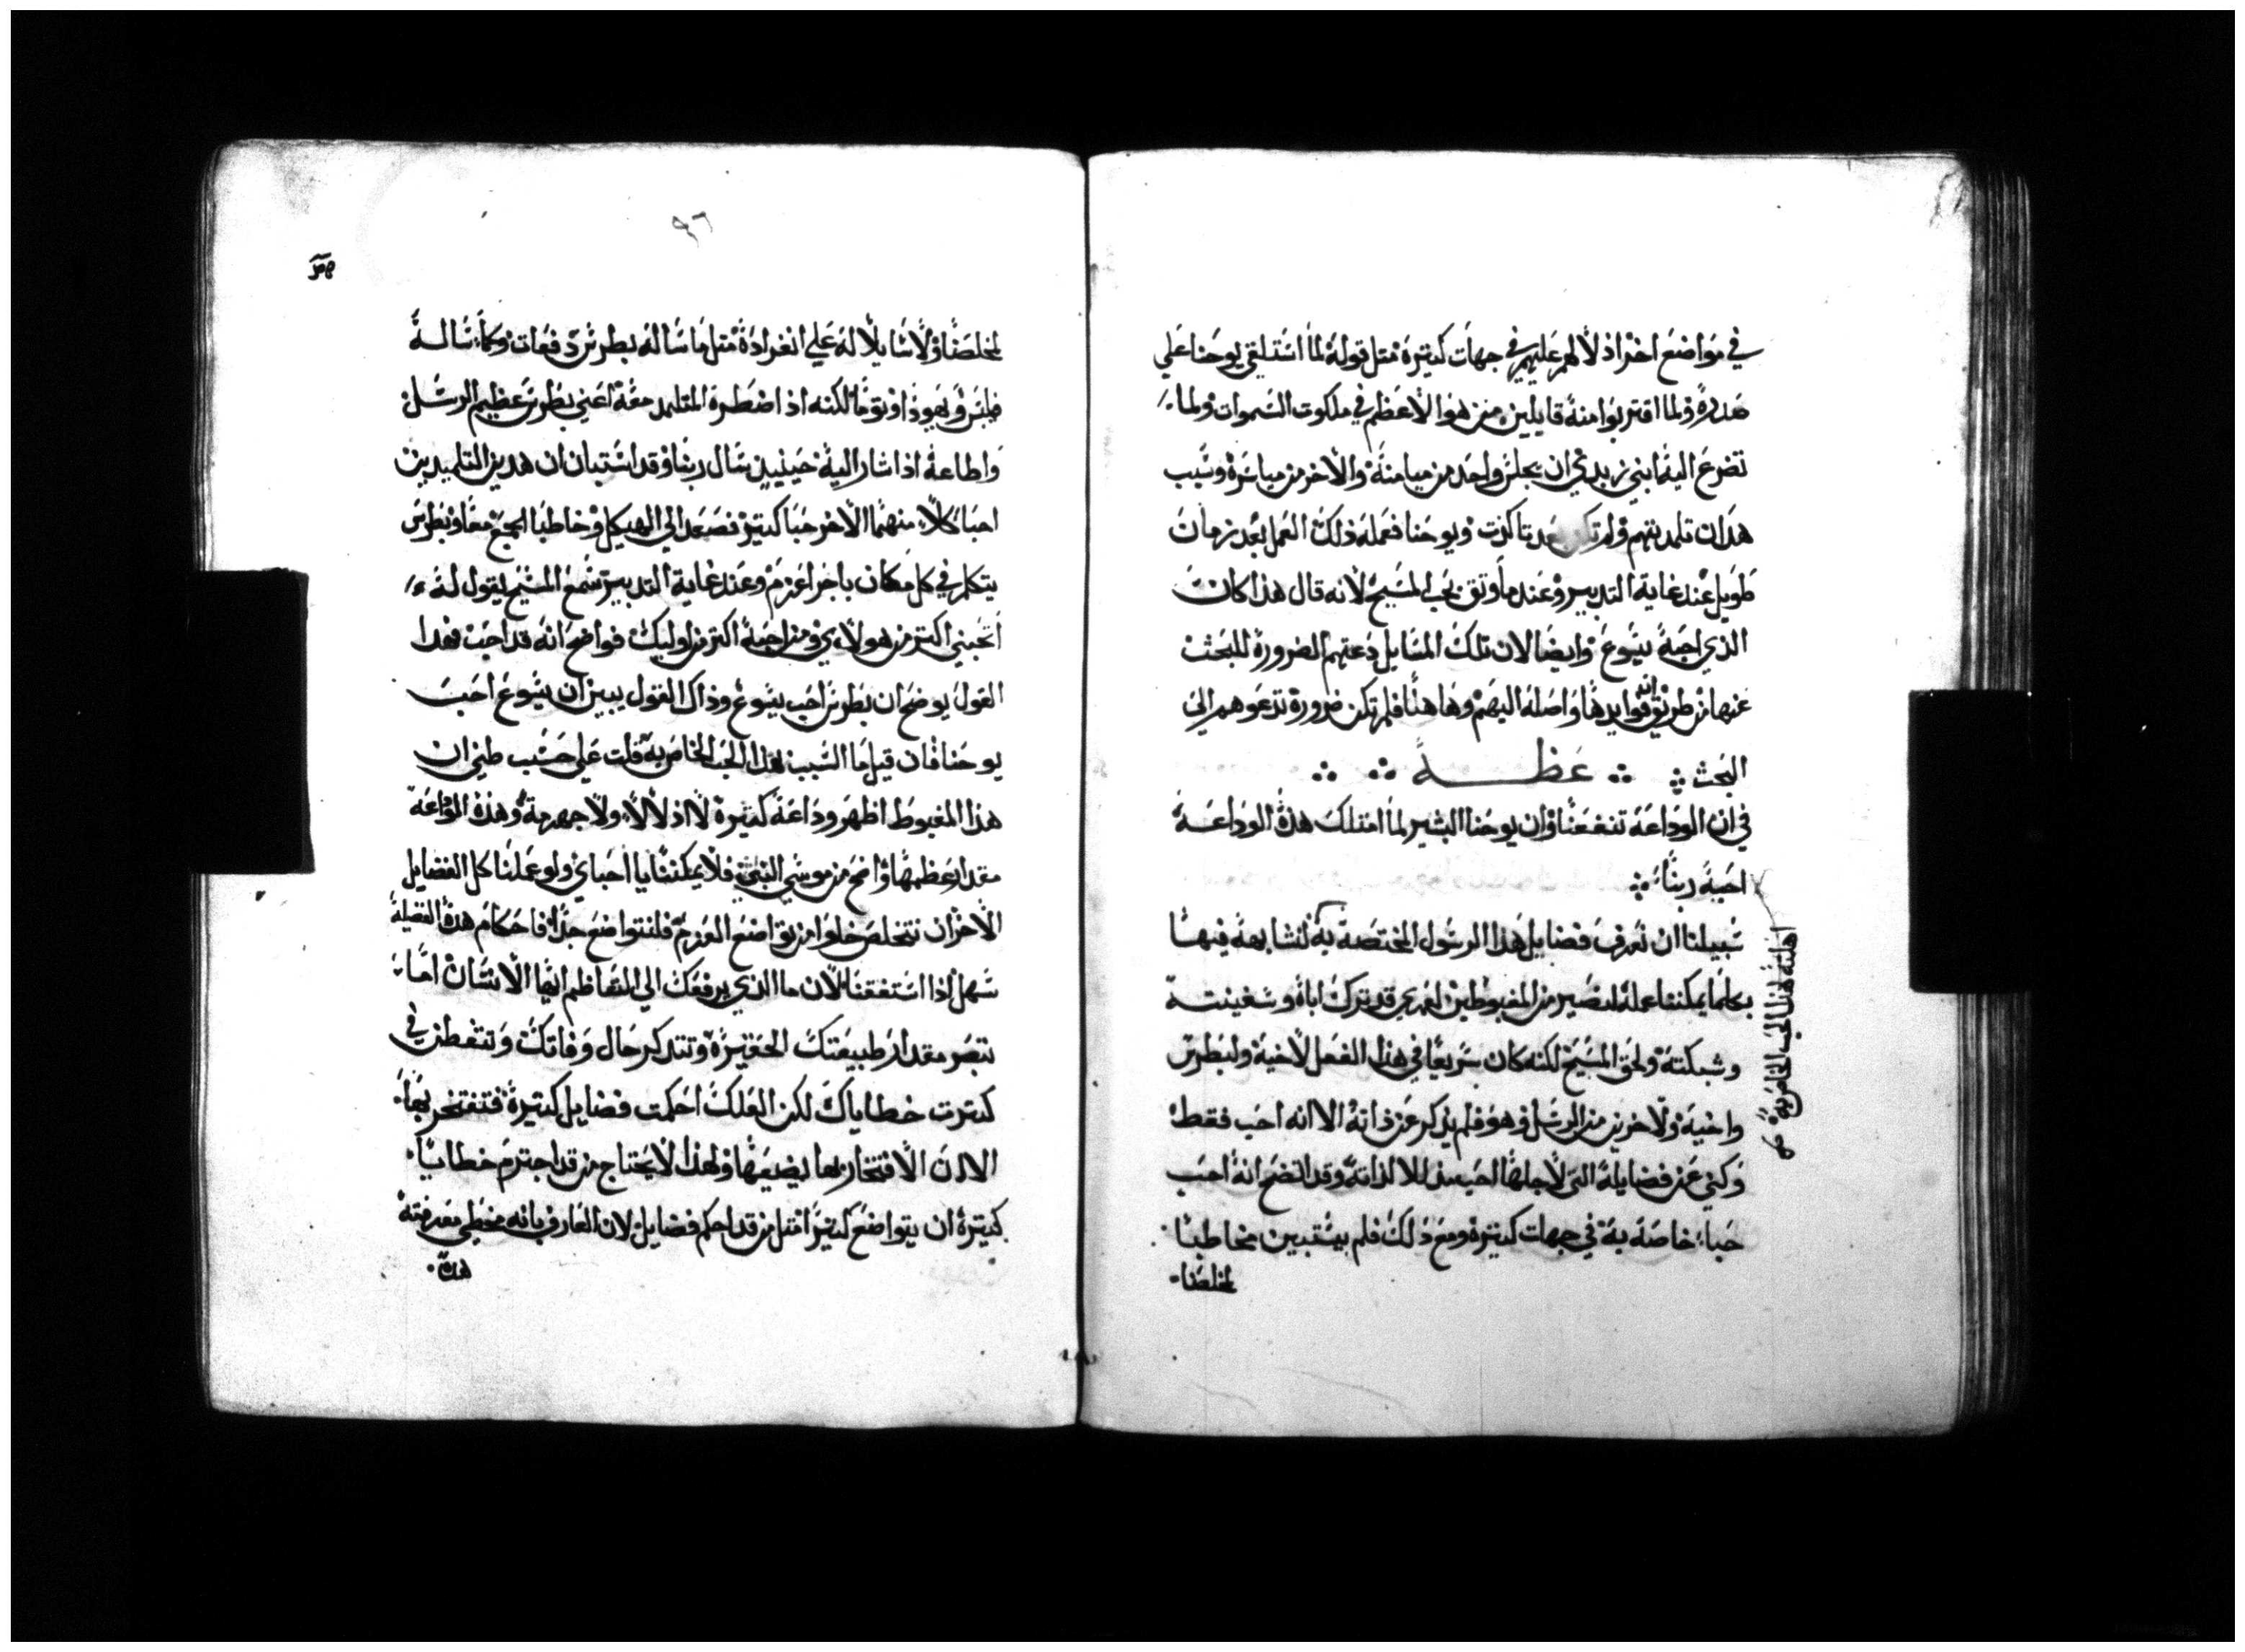 في مواضع اخر اذ لالهم عليهم في جهات كتيرة متل قوله لما استلقي يوحنا علي
صدره ولما اقتربوا منه قايلين من هو الاعظم في ملكوت السموات ولما
تضرع اليه ابني زبدي ان يجلس واحد من ميامنه والاخر من مياسره وسبب
هدان تلمديتهم ولم تكن بعد تاكدت ويوحنا فعمله ذلك العمل بعد زمان
طويل عند غاية التدبير وعند ما وتق بحب المسيح لانه قال هذا كان
الذي احبه يسوع وايضا لان تلك المسايل دعتهم الضرورة للبحث
عنها من طريق ان فوايدها واصله اليهم وهاهنا فلم تكن ضرورة تدعوهم الي
البحث عظة
في ان الوداعة تنفعنا وان يوحنا البشير لما امتلك هذه الوداعة
احبه ربنا
سبيلنا ان نعرف فضايل هذا الرسول المختصة به لنشابهه فيها
بكلما يمكننا عمله لنصير من المغبوطين لعمري قد ترك اباه وسفينته
وشبكته ولحق المسيح لكنه كان سريعا في هذا الفعل لاخيه ولبطرس
واخيه ولاخرين من الرسل وهو فلم يذكر عن ذاته الا انه احب فقط
وكني عن فضايله التي لاجلها احب الا لذاته وقد اتضح انه احب
حبا خاصه به في جهات كتيرة ومع ذلك فلم يستبين مخاطبا
لمخلصنا
اهلته لهذا الحب الخاص به
٩٦
لمخلصنا ولا سايلا له علي انفراده متل ما ساله بطرس دفعات وكما ساله
فيلبس ويهوذا وتوما لكنه اذ اضطره المتلمد معه اعني بطرس عظيم الرسل
واطاعه اذ اشار اليه حينيين سال ربنا وقد استبان ان هدين التلميدين
احبا كلا منهما الاخر حبا كتير فصعدا الي الهيكل وخاطبا الجمع معا وبطرس
يتكلم في كل مكان باجرا عزم وعند غاية التدبير سمع المسيح ليقول له
اتحبني اكتر من هولاي ومن احبه اكتر من اوليك فواضح انه قد احب فهدا
القول يوضح ان بطرس احب يسوع وذاك القول يبين ان يسوع احب
يوحنا فان قيل ما السبب لهذا الحب الخاص به قلت علي حسب ظني ان
هذا المغبوط اظهر وداعة كتيرة لا اذلالا ولا جهرمة وهذه الوداعة
مقدار عظمها واضح من موسي النبي فلا يمكننا يا احباي ولو عملنا كل الفضايل
الاخر ان نتخلص خلوا من تواضع العزم فلنتواضع جدا فاحكام هده الفضيلة
سهل اذا استفقنا لان ما الذي يرفعك الي التعاظم ايها الانسان اما
تبصر مقدار طبيعتك الحقيرة وتتدكر حال وفاتك وتتفطن في
كترت خطاياك لكن لعلك احكمت فضايل كتيرة فتفتخر بها
الا ان الافتخار بها يضيعها ولهذا لا يحتاج من قد اجترم خطايا
كتيرة ان يتواضع كتيرا متل من قد احكم فضايل لان العارف بانه مخطي معرفته
هده